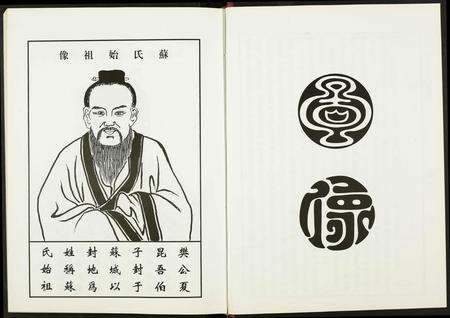 蘇氏始祖像
樊公夏
昆吾伯
子封于
蘇城以
封地為
姓稱蘇
氏始祖
像